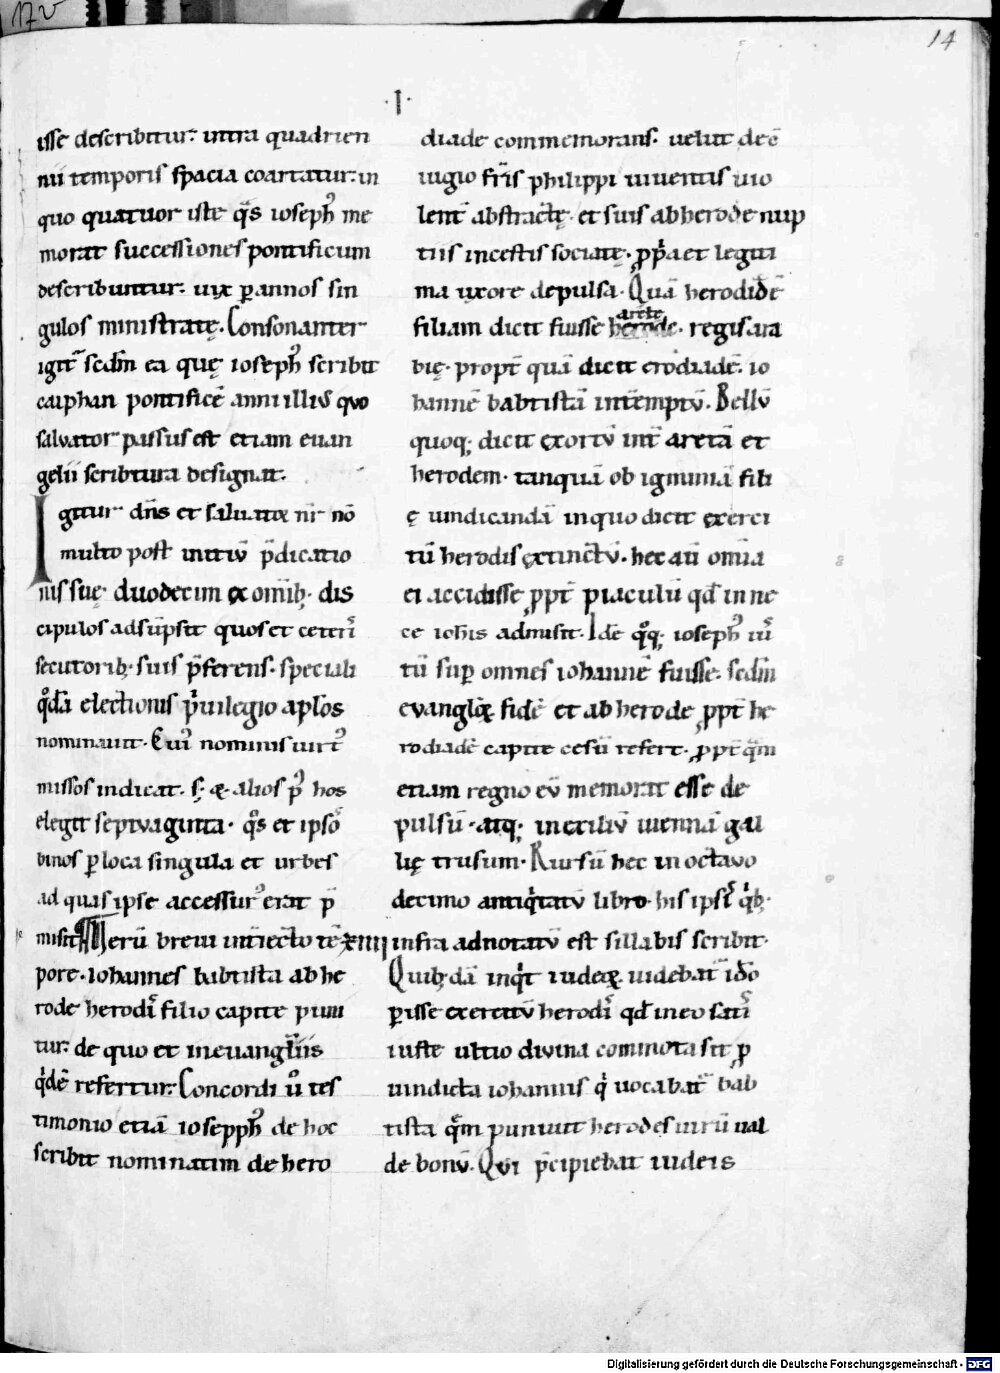 17v
14
·I·
isse describitur. intra quadrien
nii temporis spacia coartatur. in
quo quatuor iste q̃s ioseph᾽ me
morat successiones pontificum
describuntur. uix p̱ annos sin
gulos ministratę. Consonanter
igit᷒ sedm̃ ea quę ioseph᾽ scribit
caiphan pontificẽ anni illiꝰ quo
salvator passus est etiam euan
gelii scribtura designat.
Igitur dñs et saluator nr̃ nõ
multo post initiũ p̃dicatio
nis suę. duodecim ex omĩb; dis
cipulos adsũpsit quos et ceteri᷒
secutorib; suis p̃ferens. speciali
qͦdã electionis pͥuilegio aplõs
nominauit. Cuiꝰ nominis uirt᷒
missos indicat. s; & alios p᷒ hos
elegit septvaginta. qͦs et ipsõ
binos p̱ loca singula et urbes
ad quas ipse accessurꝰ erat p̃
misit Verũ breui int̃iecto tẽ xiiii
pore. Iohannes babtista ab he
rode herodi᷒ filio capite puni
tur. de quo et in evangl̃iis
qͥdẽ refertur. Concordi ũ tes
timonio etiã iosepph᾽ de hoc
scribit nominatim de hero
diade commemorans. uelut de c̃
iugio fr̃is philippi uiuentis uio
lent̃ abstractę. et suis ab herode nup
tiis incestis sociatę. p̱pͥa et legiti
ma uxore depulsa. Quã herodidẽ
arete
filiam dicit fuisse herode. regis ara
bię. propt̃ quã dicit erodiadẽ. io
hannẽ babtistã int̃emptũ. Bellũ
quoq; dicit exortũ int̃ aretã et
herodem. tanquã ob igniminã fili
ę uindicandã in quo dicit exerci
tũ herodis extinctũ. hec aũ omĩa
ei accidisse ꝓpt̃ piaculũ qd̃ in ne
ce ioh̃is admisit. Idẽ qͦq; ioseph᾽ iu᷒
tũ sup̱ omnes iohannẽ fuisse. sedm̃
evangliꝝ fidẽ et ab herode ꝓpt̃ he
rodiadẽ capite cesũ refert. ꝓpt̃ qͣm
etiam regno eũ memorat esse de
pulsũ. atq; in exiliũ uiennã gal
lię trusum. Rursũ hec in octavo
decimo antiqͥtatũ libro. his ipsi᷒ qͥb;
infra adnotatũ est sillabis scribit.
Quib;dã inqͥt iudeꝝ. uidebat᷒ iďo
p̱isse exercitũ herodi᷒ qd̃ in eo sati᷒
iuste ultio divina commota sit p̱
uindicta iohannis qͥ uocabat᷒ bab
tista qͣm puniuit herodes uirũ ual
de bonũ. Qui p̃cipiebat iudeis
Digitalisierung gefördert durch die Deutsche Forschungsgemeinschaft - DFG